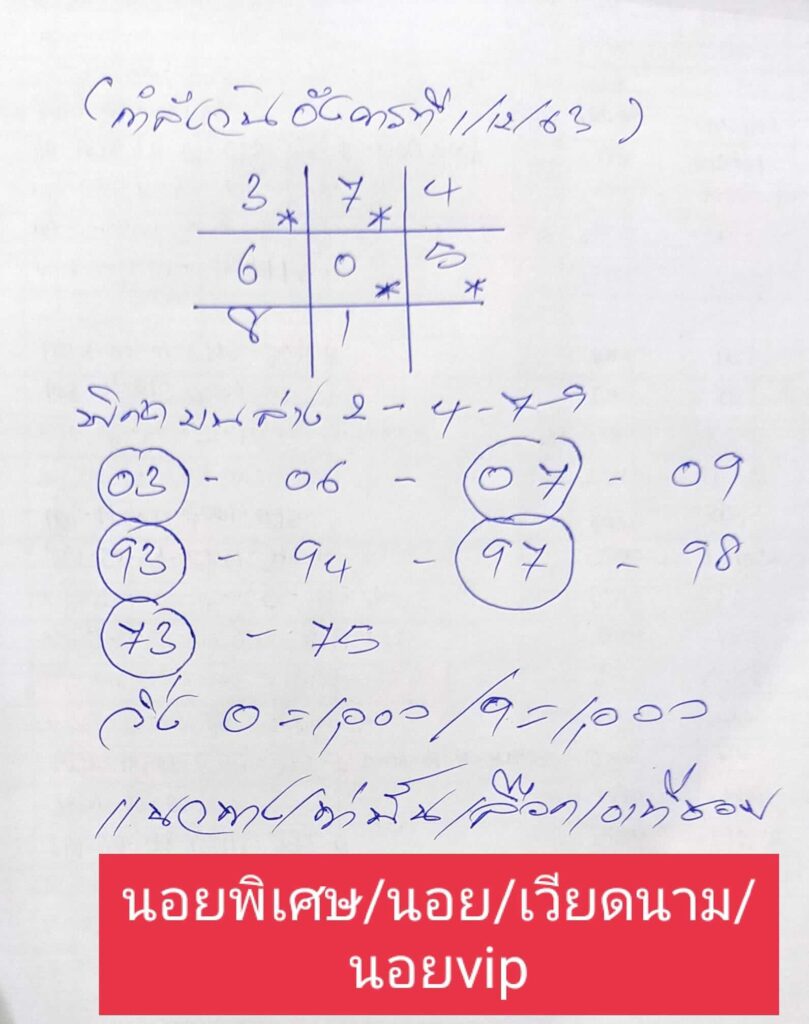 (กำลังวันอังคารที่ 1/12/63)
3* 7* 4
6 0* 5*
8 1
พิกัด บนล่าง 2-4-7-9
03 - 06 - 07 - 09
93 - 94 - 97 - 98
73 - 75
วิ่ง 0 = 1,000 / 9 = 1,000
แนวทางเท่านั้นเลือกเอาที่ชอบ
นอยพิเศษ/นอย/เวียดนาม/
นอยvip